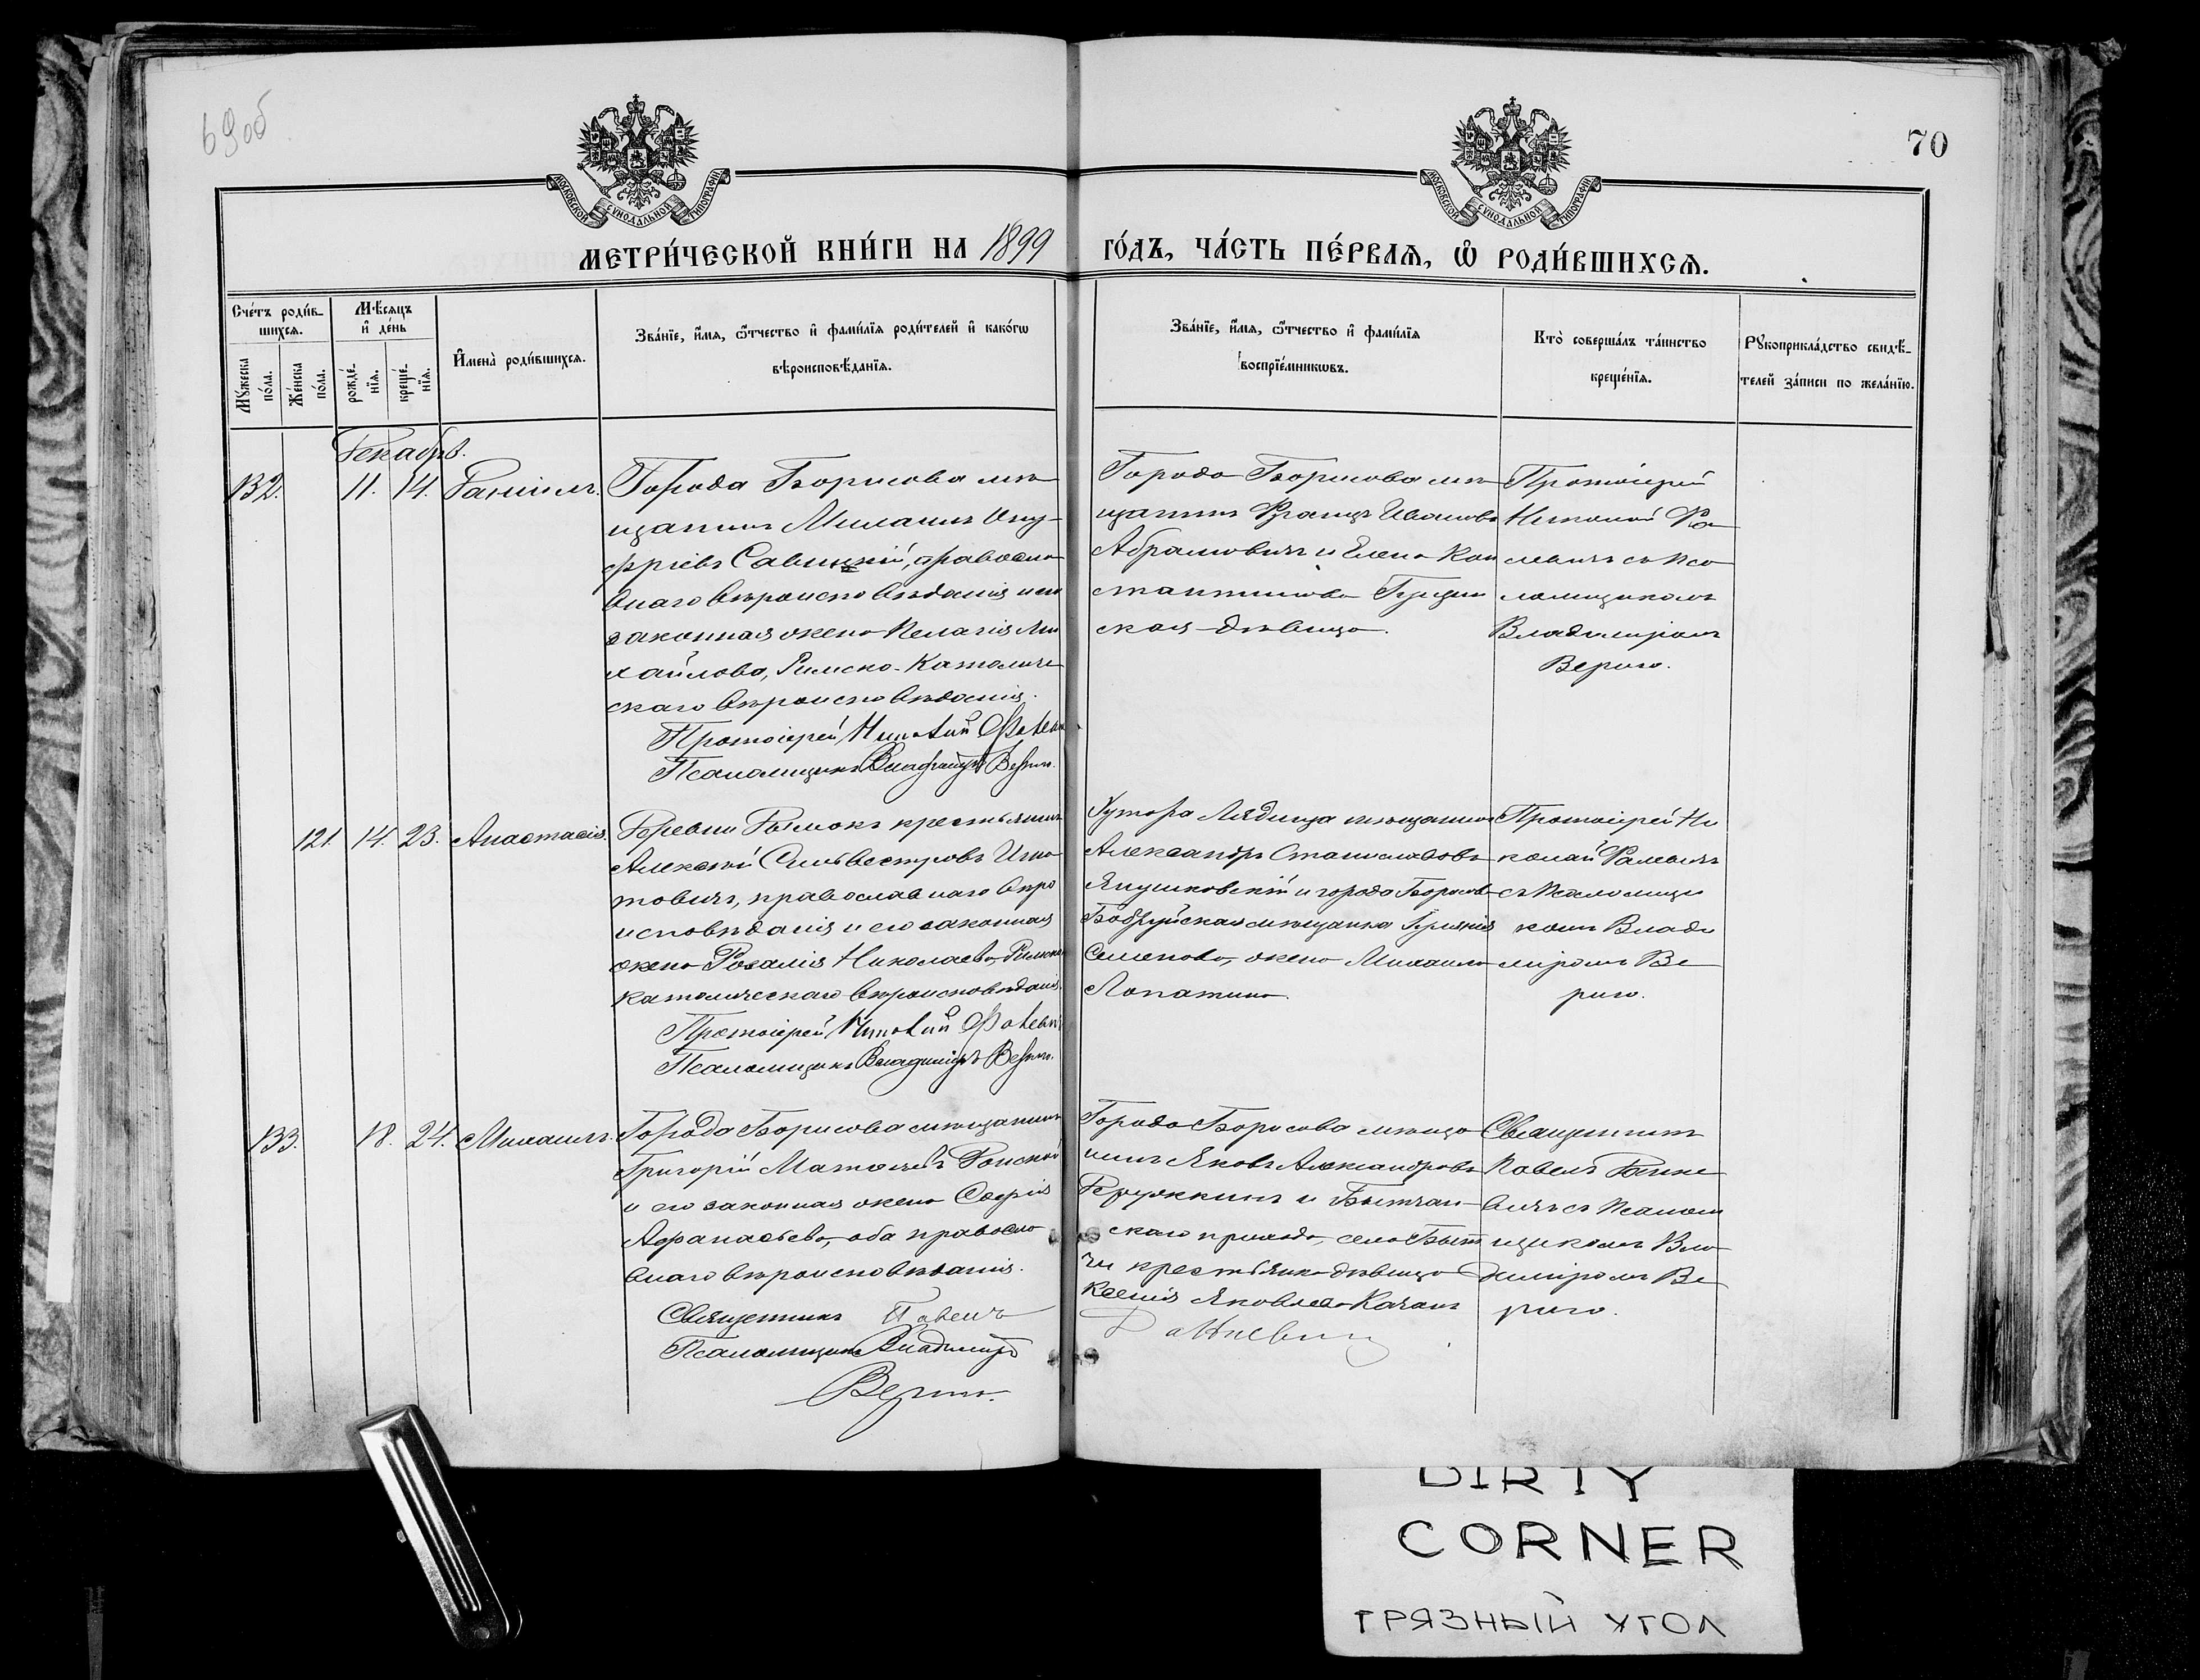 69об
70
МОСКОВСКОЙ СѴНОДАЛЬНОЙ ТИПОГРАФІИ
МОСКОВСКОЙ СѴНОДАЛЬНОЙ ТИПОГРАФІИ
МЕТРИ́ЧЕСКОЙ КНИ́ГИ НА 1899 ГО́ДЪ, ЧА́СТЬ ПЕ́РВАѦ, Ѽ РОДИ́ВШИХСѦ.
Сче́тъ роди́в-
шихсѧ.
Мꙋ́жеска по́ла.
Же́нска по́ла.
Мѣ́сѧцъ
и҆ де́нь
рожде́-
нїѧ.
креще́-
нїѧ.
И҆мена̀ роди́вшихсѧ.
Зва́нїе, и҆́мѧ, ѻ҆́тчество и҆ фами́лїѧ роди́телей и҆ како́гѡ
вѣроисповѣ́данїѧ.
Зва́нїе, и҆́мѧ, ѻ҆́тчество и҆ фами́лїѧ
воспрїе́мникѡвъ.
Кто̀ соверша́лъ та́инство
креще́нїѧ.
Рꙋкоприкла́дство свидѣ́-
телей за́писи по жела́нїю.
Декабрь.
132. 11. 14. Даніилъ.
Города Борисова мѣ-
щанинъ Михаилъ Ону-
фріевъ Савицкій, православ
наго вѣроисповѣданія и его
законная жена Пелагія Ми
хайлова, Римско-Католиче
скаго вѣроисповѣданія.
Протоіерей
Псаломщикъ Владиміръ Верига.
Города Борисова мѣ
щанинъ Францъ Ивановъ
Абрамовичъ и Елена Кон
стантинова
ская дѣвица.
Протоіерей
съ Пса
ломщикомъ
Владиміромъ
Верига.
121. 14. 23. Анастасія.
Деревни Дымокъ крестьянинъ
Алексѣй Сильвестровъ Игна
товичъ, православнаго вѣро
исповѣданія и его законная
жена Розалія Николаева, Римско
католическаго вѣроисповѣданія.
Протоіерей
Псаломщикъ Владиміръ Верига.
Хутора Лядища мѣщанинъ
Александръ Станиславовъ
Янушковскій и города Борисова
Бобруйская мѣщанка
Семенова, жена Михаила
Лопатина.
Протоіерей Ни
колай
съ Псаломщи
комъ Влади
міромъ Ве
рига.
133. 18. 24. Михаилъ.
Города Борисова мѣщанинъ
Григорій Матвѣевъ
и его законная жена Софія
Афанасьева, оба православ
наго вѣроисповѣданія.
Священникъ Павелъ
Псаломщикъ Владиміръ
Верига.
Города Борисова мѣща
нинъ Яковъ Александровъ
и Бытчан-
скаго прихода, села Быт
чи крестьянка дѣвица
Ксенія Яковлева Качанъ
Священникъ
Павелъ
съ Псалом
щикомъ Вла
диміромъ Ве
рига.
DIRTY
CORNER
ГРЯЗНЫЙ УГОЛ